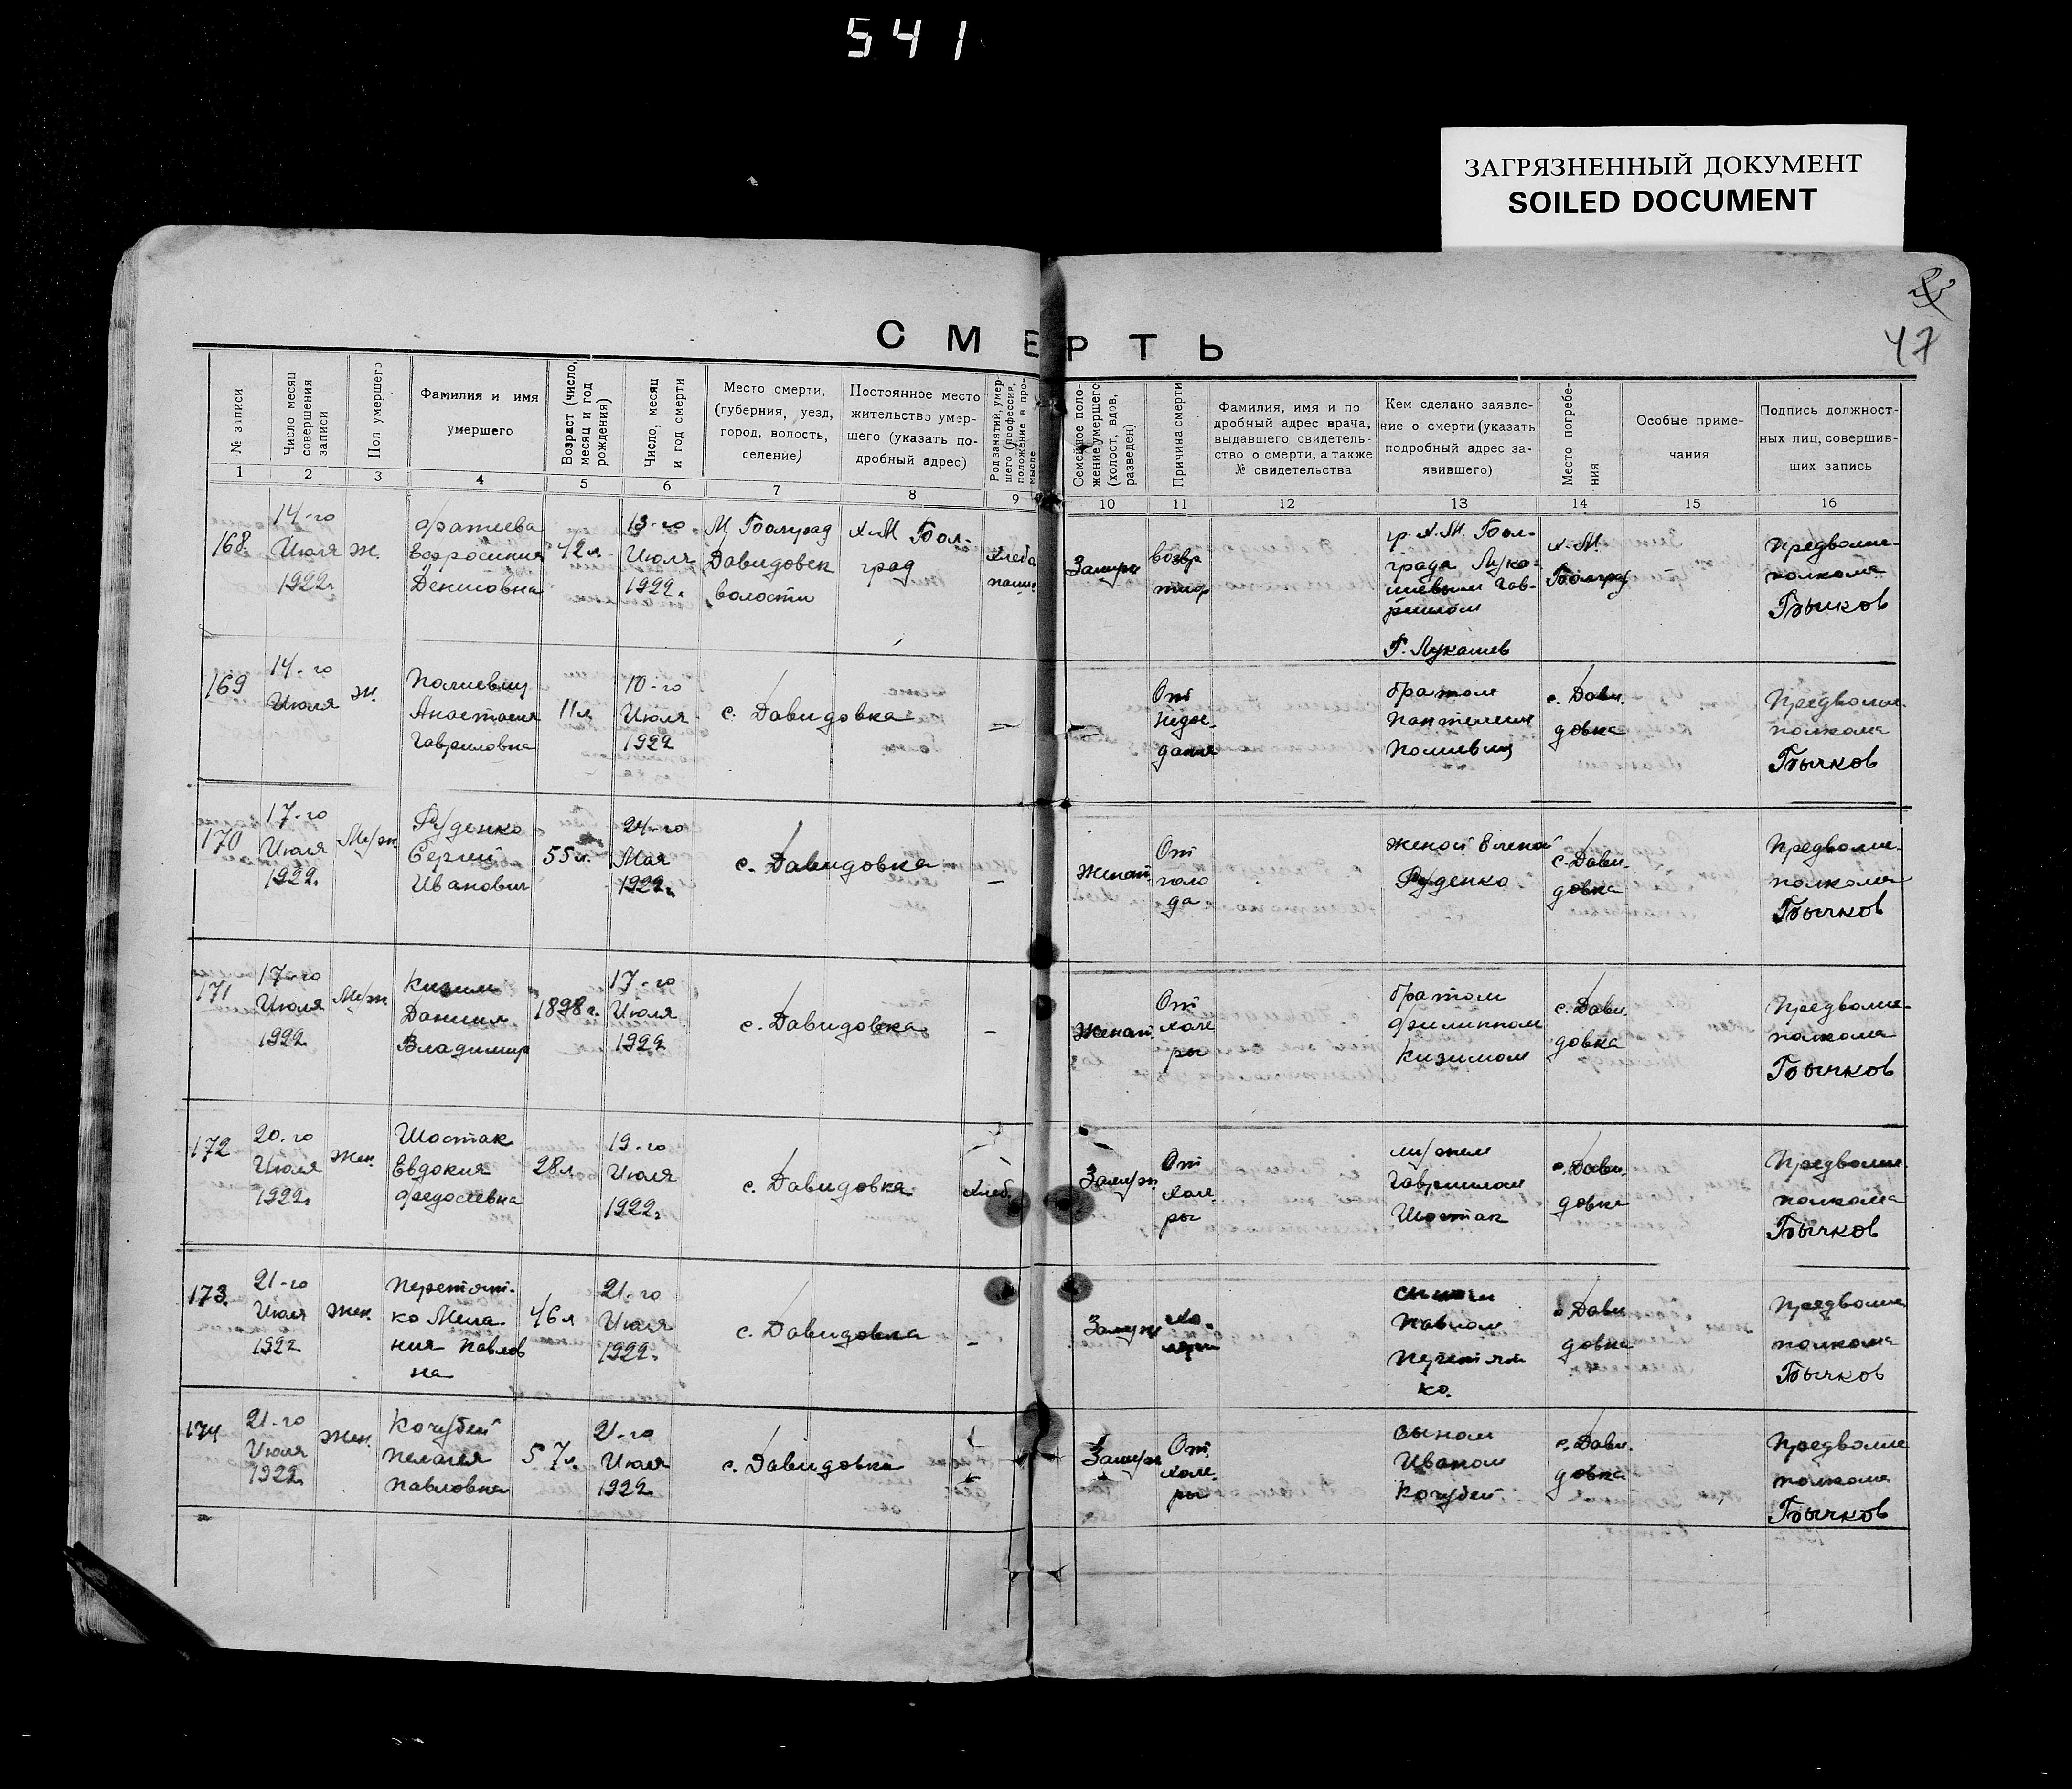 541
ЗАГРЯЗНЕННЫЙ ДОКУМЕНТ
SOILED DOCUMENT
47
СМЕРТЬ
№ записи
Число месяц совершения записи
Пол умершего
Фамилия и имя умершего
Возраст (число, месяц и год рождения)
Число, месяц и год смерти
Место смерти, (губерния, уезд, город, волость, селение)
Постоянное место жительство умершего (указать подробный адрес)
Род занятий, умершего (профессия, положение в промысле
Семейное положение умершего (холост, вдов, разведен)
Причина смерти
Фамилия, имя и подробный адрес врача, выдавшего свидетельство о смерти, а также № свидетельства
Кем сделано заявление о смерти (указать подробный адрес заявившего)
Место погребения
Особые примечания
Подпись должностных лиц, совершивших запись
1 2 3 4 5 6 7 8 9 10 11 12 13 14 15 16
168. 14-го Июля 1922г. Ж. Фатеева Денисовна 42 л. 13-го Июля 1922г. Давидовск волости
Г. Лукашев
Предволисполкома Бычков
169 14-го Июля Ж. Анастасия Гавриловна 11 л 10-го Июля 1922 с. Давидовка — — От недоедания братом с. Давидовка Предволисполкома Бычков
170 17-го Июля 1922г. Муж. Руденко Сергей Иванович 55 л. 24-го Мая 1922г. с. Давидовка — Женат От голода женой Еленой Руденко с. Давидовка Предволисполкома Бычков
171 17-го Июля 1922 Муж Кизим Даниил Владимир 1898 г. 17-го Июля 1922 с. Давидовка — Женат От холеры братом Филиппом Кизимом с. Давидовка Предволисполкома Бычков
172 20-го Июля 1922г. Жен. Шостак Евдокия Федосеевна 28 л 19-го Июля 1922г. с. Давидовка Хлеб. Замуж. От холеры мужем Гаврилом Шостак с. Давидовка Предволисполкома Бычков
173. 21-го Июля 1922 Жен. Перетятко Мелания Павловна 46 л 21-го Июля 1922г. с. Давидовка — Замуж сыном Павлом Перетятко. с. Давидовка Предволисполкома Бычков
174 21-го Июля 1922г. Жен. Кочубей Пелагея Павловна 57 л. 21-го Июля 1922 с. Давидовка Замуж От холеры сыном Иваном Кочубей с. Давидовка Предволисполкома Бычков